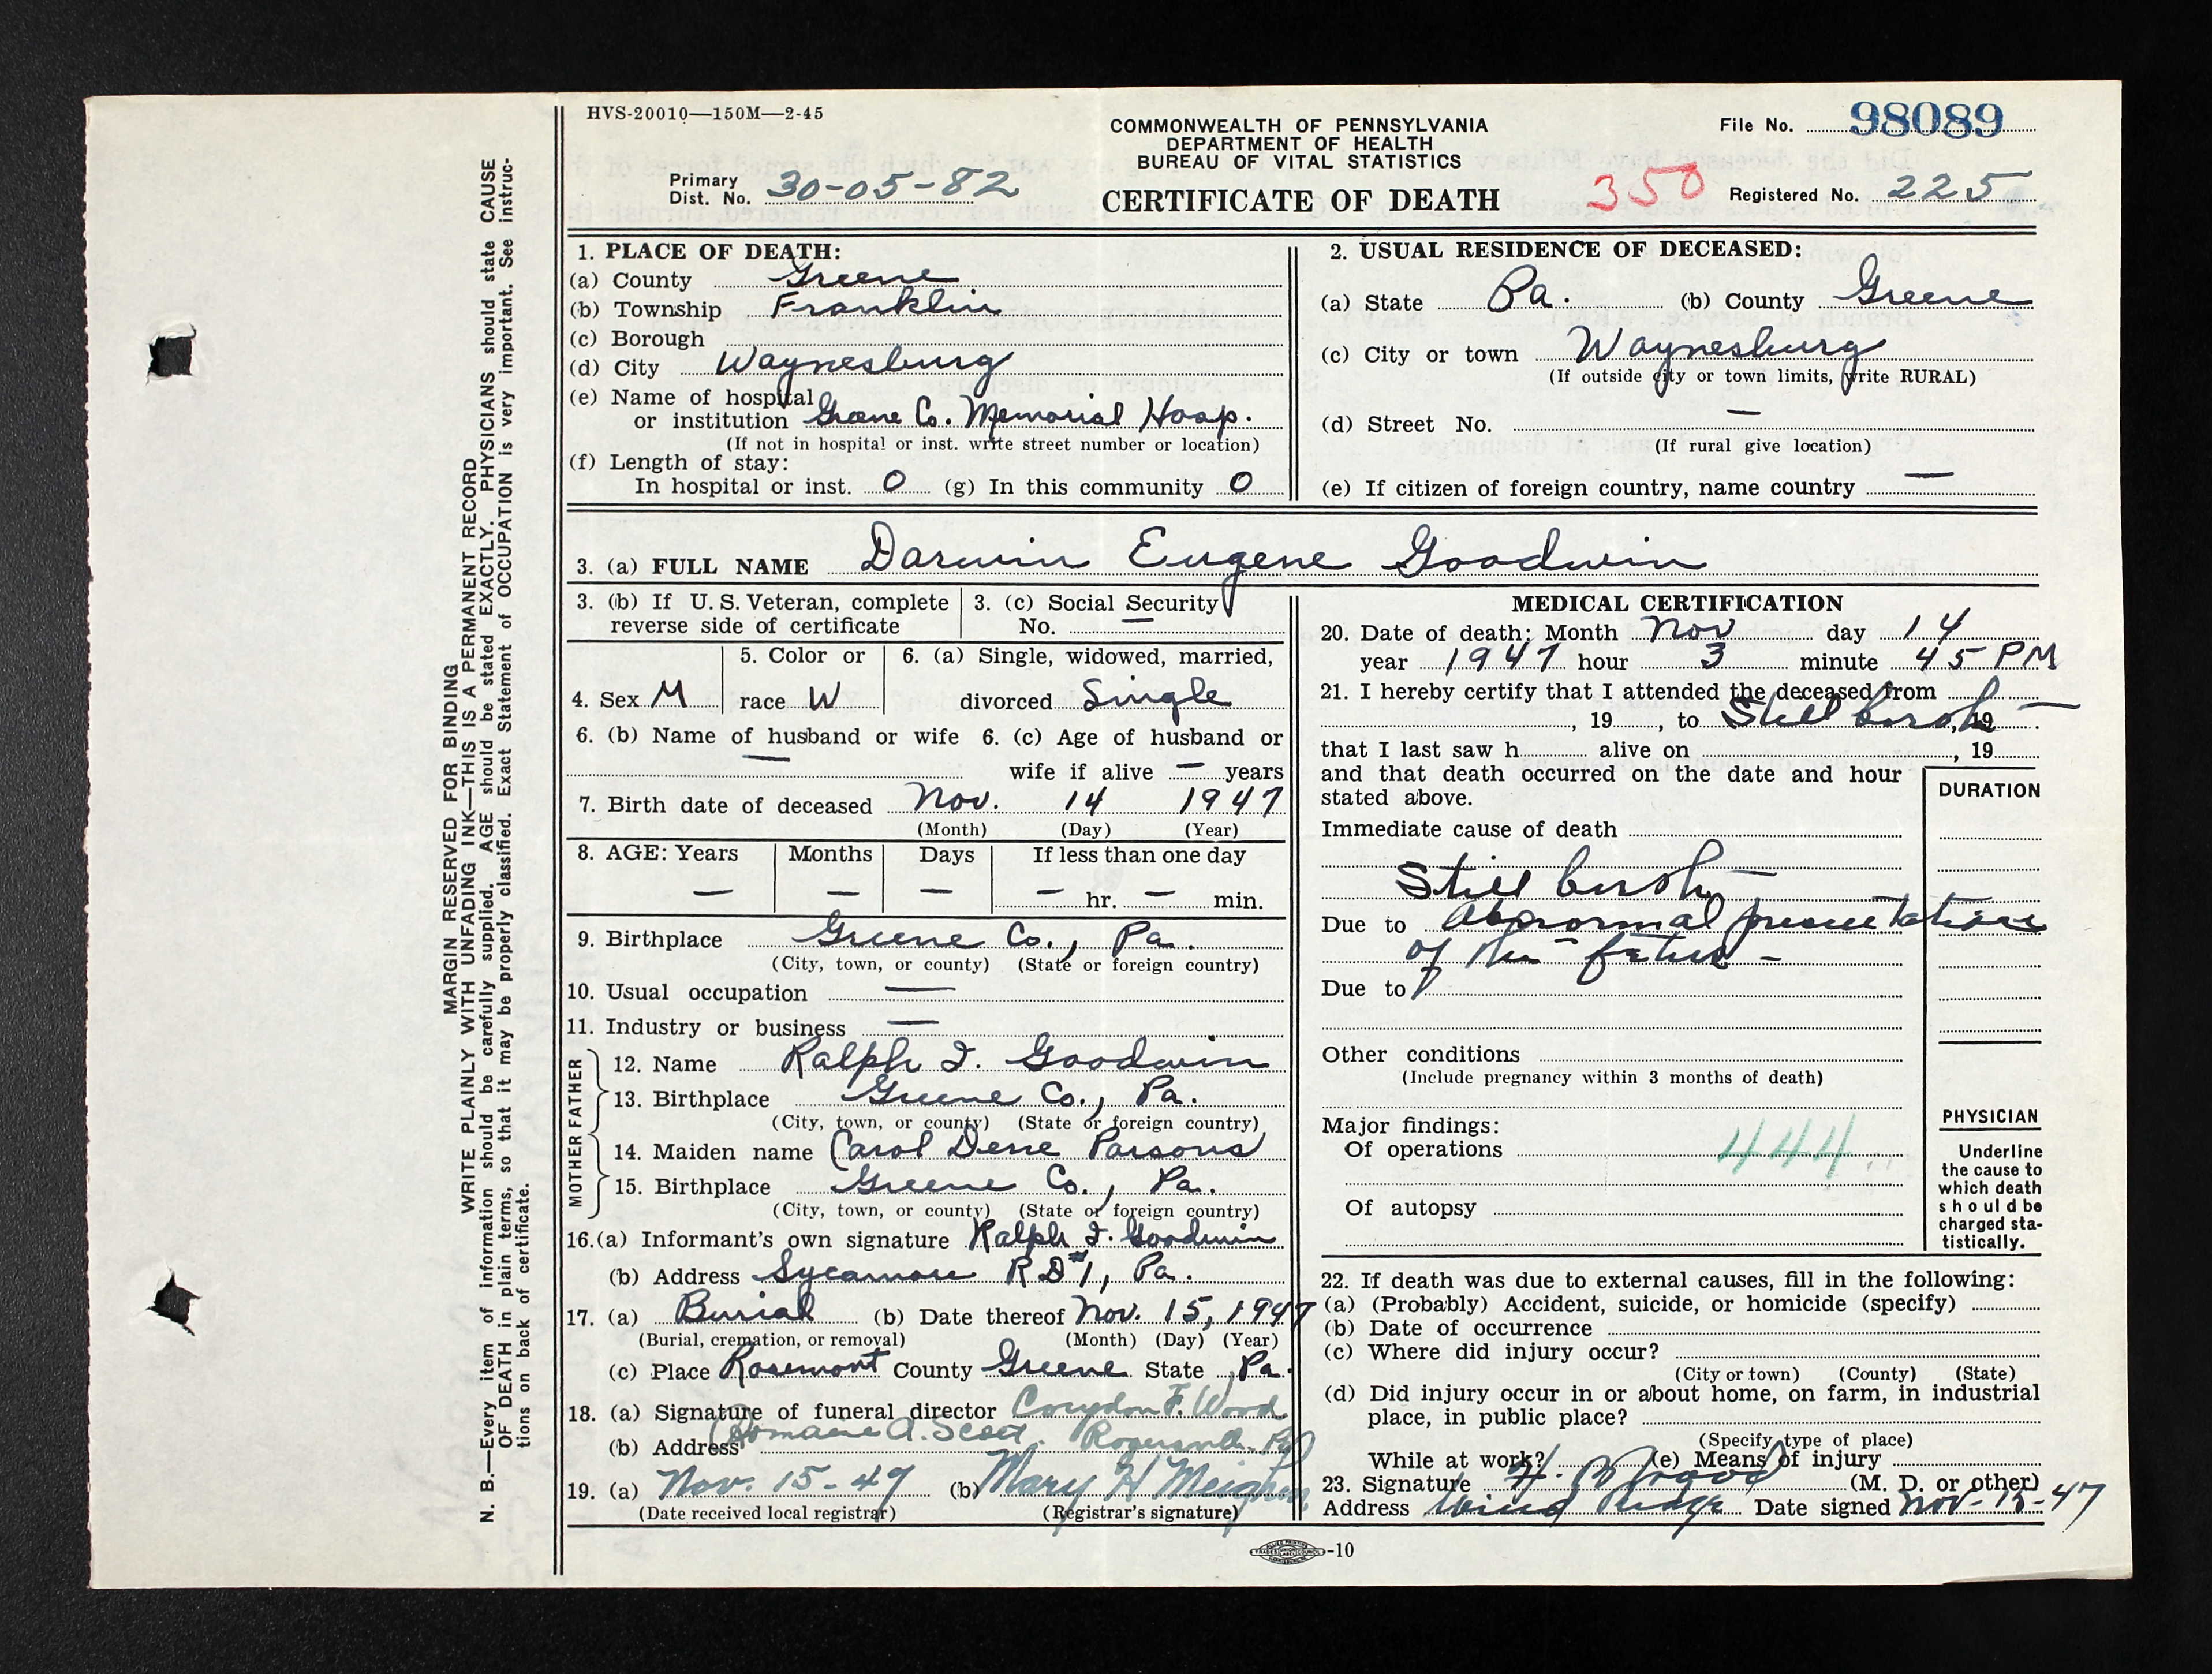 HVS-20010—150M—2-45
COMMONWEALTH OF PENNSYLVANIA
DEPARTMENT OF HEALTH
BUREAU OF VITAL STATISTICS
CERTIFICATE OF DEATH
File No. 98089
Primary
Dist. No. 30-05-82
350
Registered No. 225
MARGIN RESERVED FOR BINDING
WRITE PLAINLY WITH UNFADING INK—THIS IS A PERMANENT RECORD
N. B.—Every item of information should be carefully supplied. AGE should be stated EXACTLY. PHYSICIANS should state CAUSE
OF DEATH in plain terms, so that it may be properly classified. Exact Statement of OCCUPATION is very important. See instruc-
tions on back of certificate.
1. PLACE OF DEATH:
(a) County Greene
(b) Township Franklin
(c) Borough
(d) City Waynesburg
(e) Name of hospital
or institution Greene Co. Memorial Hosp.
(If not in hospital or inst. write street number or location)
(f) Length of stay:
In hospital or inst. 0 (g) In this community 0
2. USUAL RESIDENCE OF DECEASED:
(a) State Pa. (b) County Greene
(c) City or town Waynesburg
(If outside city or town limits, write RURAL)
(d) Street No. —
(If rural give location)
(e) If citizen of foreign country, name country —
3. (a) FULL NAME Darwin Eugene Goodwin
3. (b) If U. S. Veteran, complete
reverse side of certificate
3. (c) Social Security
No. —
4. Sex M
5. Color or
race W
6. (a) Single, widowed, married,
divorced Single
6. (b) Name of husband or wife
—
6. (c) Age of husband or
wife if alive — years
7. Birth date of deceased Nov. 14 1947
(Month) (Day) (Year)
8. AGE: Years Months Days If less than one day
— — — — hr. — min.
9. Birthplace Greene Co., Pa.
(City, town, or county) (State or foreign country)
10. Usual occupation —
11. Industry or business —
FATHER
12. Name Ralph I. Goodwin
13. Birthplace Greene Co., Pa.
(City, town, or county) (State or foreign country)
MOTHER
14. Maiden name Carol Dene Parsons
15. Birthplace Greene Co., Pa.
(City, town, or county) (State or foreign country)
16.(a) Informant's own signature Ralph I. Goodwin
(b) Address Sycamore R D #1, Pa.
17. (a) Burial (b) Date thereof Nov. 15, 1947
(Burial, cremation, or removal) (Month) (Day) (Year)
(c) Place Rosemont County Greene State Pa.
18. (a) Signature of funeral director Corydon F. Wood
(b) Address Romaine A. Scott. Rogersville Pa
19. (a) Nov. 15-47 (b) Mary H Meighen
(Date received local registrar) (Registrar's signature)
MEDICAL CERTIFICATION
20. Date of death: Month Nov day 14
year 1947 hour 3 minute 45 PM
21. I hereby certify that I attended the deceased from
, 19 , to Still birth, 19
that I last saw h alive on , 19
and that death occurred on the date and hour
stated above.
DURATION
Immediate cause of death
Still birth
Due to abnormal presentation
of the fetus -
Due to
Other conditions
(Include pregnancy within 3 months of death)
Major findings:
Of operations 444
Of autopsy
PHYSICIAN
Underline
the cause to
which death
should be
charged sta-
tistically.
22. If death was due to external causes, fill in the following:
(a) (Probably) Accident, suicide, or homicide (specify)
(b) Date of occurrence
(c) Where did injury occur?
(City or town) (County) (State)
(d) Did injury occur in or about home, on farm, in industrial
place, in public place?
(Specify type of place)
While at work? (e) Means of injury
23. Signature (M. D. or other)
Address Wind Ridge Date signed Nov-15-47
-10